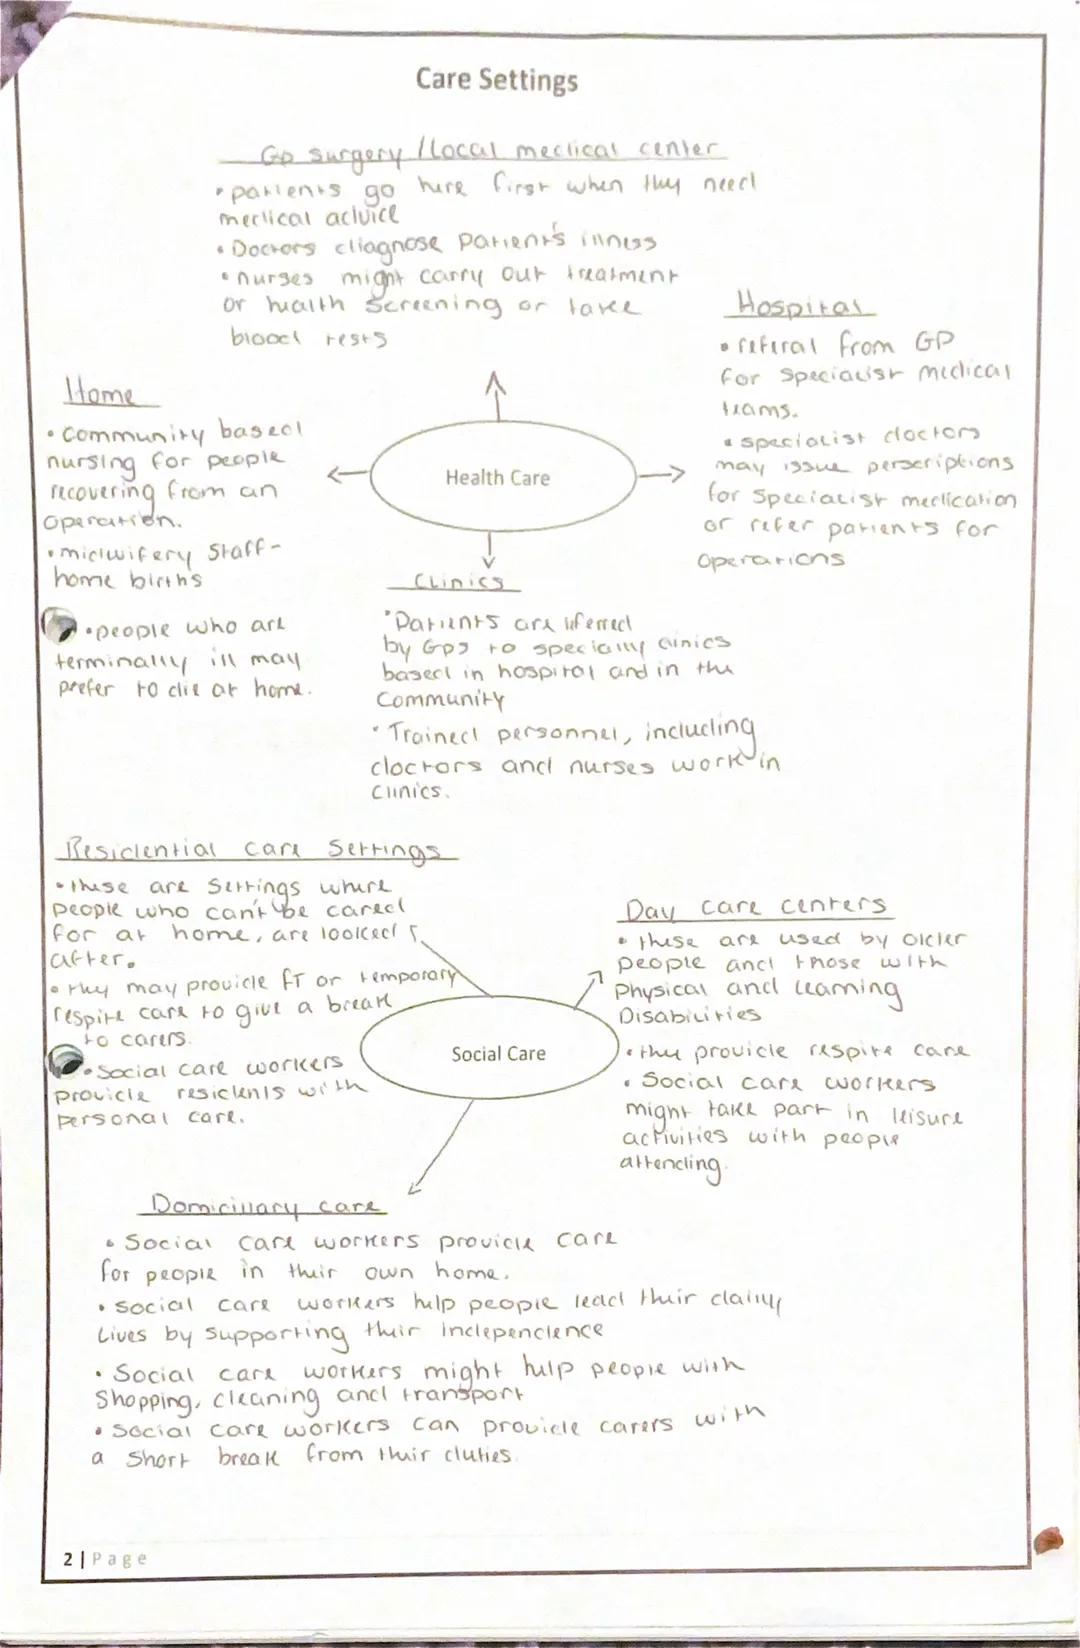 Care Settings
Gp surgery / Local medical center
• patients go here first when they need
medical advice
• Doctors diagnose patient's illness
• nurses might carry out treatment
or health screening or take
blood tests
Hospital
• referal from GP
for specialist medical
teams.
• specialist doctors
may issue perscriptions
for specialist medication
or refer patients for
operations
Home
• Community based
nursing for people
recovering from an
operation.
• midwifery staff-
home births
• people who are
terminally ill may
prefer to die at home.
Health Care
Clinics
• Patients are referred
by Gps to specialy clinics
based in hospital and in the
community
• Trained personnel, including
doctors and nurses work in
clinics.
Residential care settings
• these are settings where
people who can't be cared
for at home, are looked
after.
• they may provide fT or temporary
respite care to give a break
to carers.
• Social care workers
provide residents with
personal care.
Social Care
Day care centers
• these are used by older
people and those with
Physical and learning
Disabilities
• they provide respite care
• Social care workers
might take part in leisure
activities with people
attending.
Domicillary care
• Social care workers provide care
for people in their own home.
• social care workers help people lead their daily
lives by supporting their independence
• Social care workers might help people with
shopping, cleaning and transport
• Social care workers can provide carers with
a short break from their duties.
2 | Page